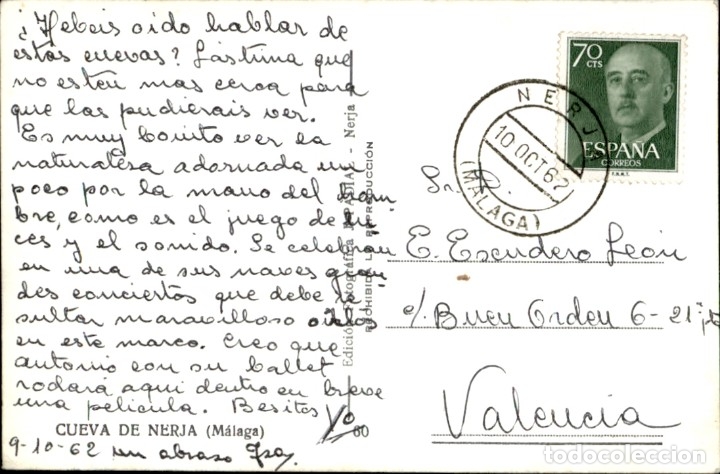 ¿Hebeis oido hablar de
estas cuevas? Lástima que
no esten mas cerca para
que las pudierais ver.
Es muy bonito ver la
naturalesa adornada un
poco por la mano del hom
bre, como es el juego de lu
ces y el sonido. Se celebran
en una de sus naves gran
des conciertos que debe re
sultar maravilloso oirlos
en este marco. Creo que
antonio con su ballet
rodará aqui dentro en breve
una pelicula. Besitos
CUEVA DE NERJA (Málaga)
60
9-10-62 un abraso
Edición Fotográfica - Nerja
PROHIBIDA LA REPRODUCCIÓN
NERJA
10 OCT 62
(MALAGA)
70
CTS
ESPAÑA
CORREOS
F.N.M.T.
Sr. D.
E. Escudero León
c/ Buen Orden 6-21
Valencia
todocoleccion